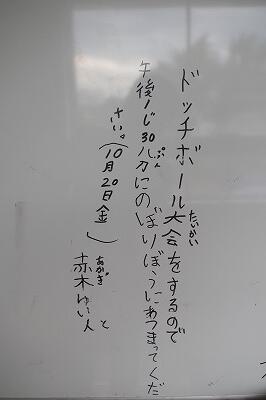 ドッチボール大会をするので
午後1じ30分にのぼりぼうにあつまってくだ
さい。(10月20日金)
赤木ゆい人
たいかい
ぷん
あかぎ
と